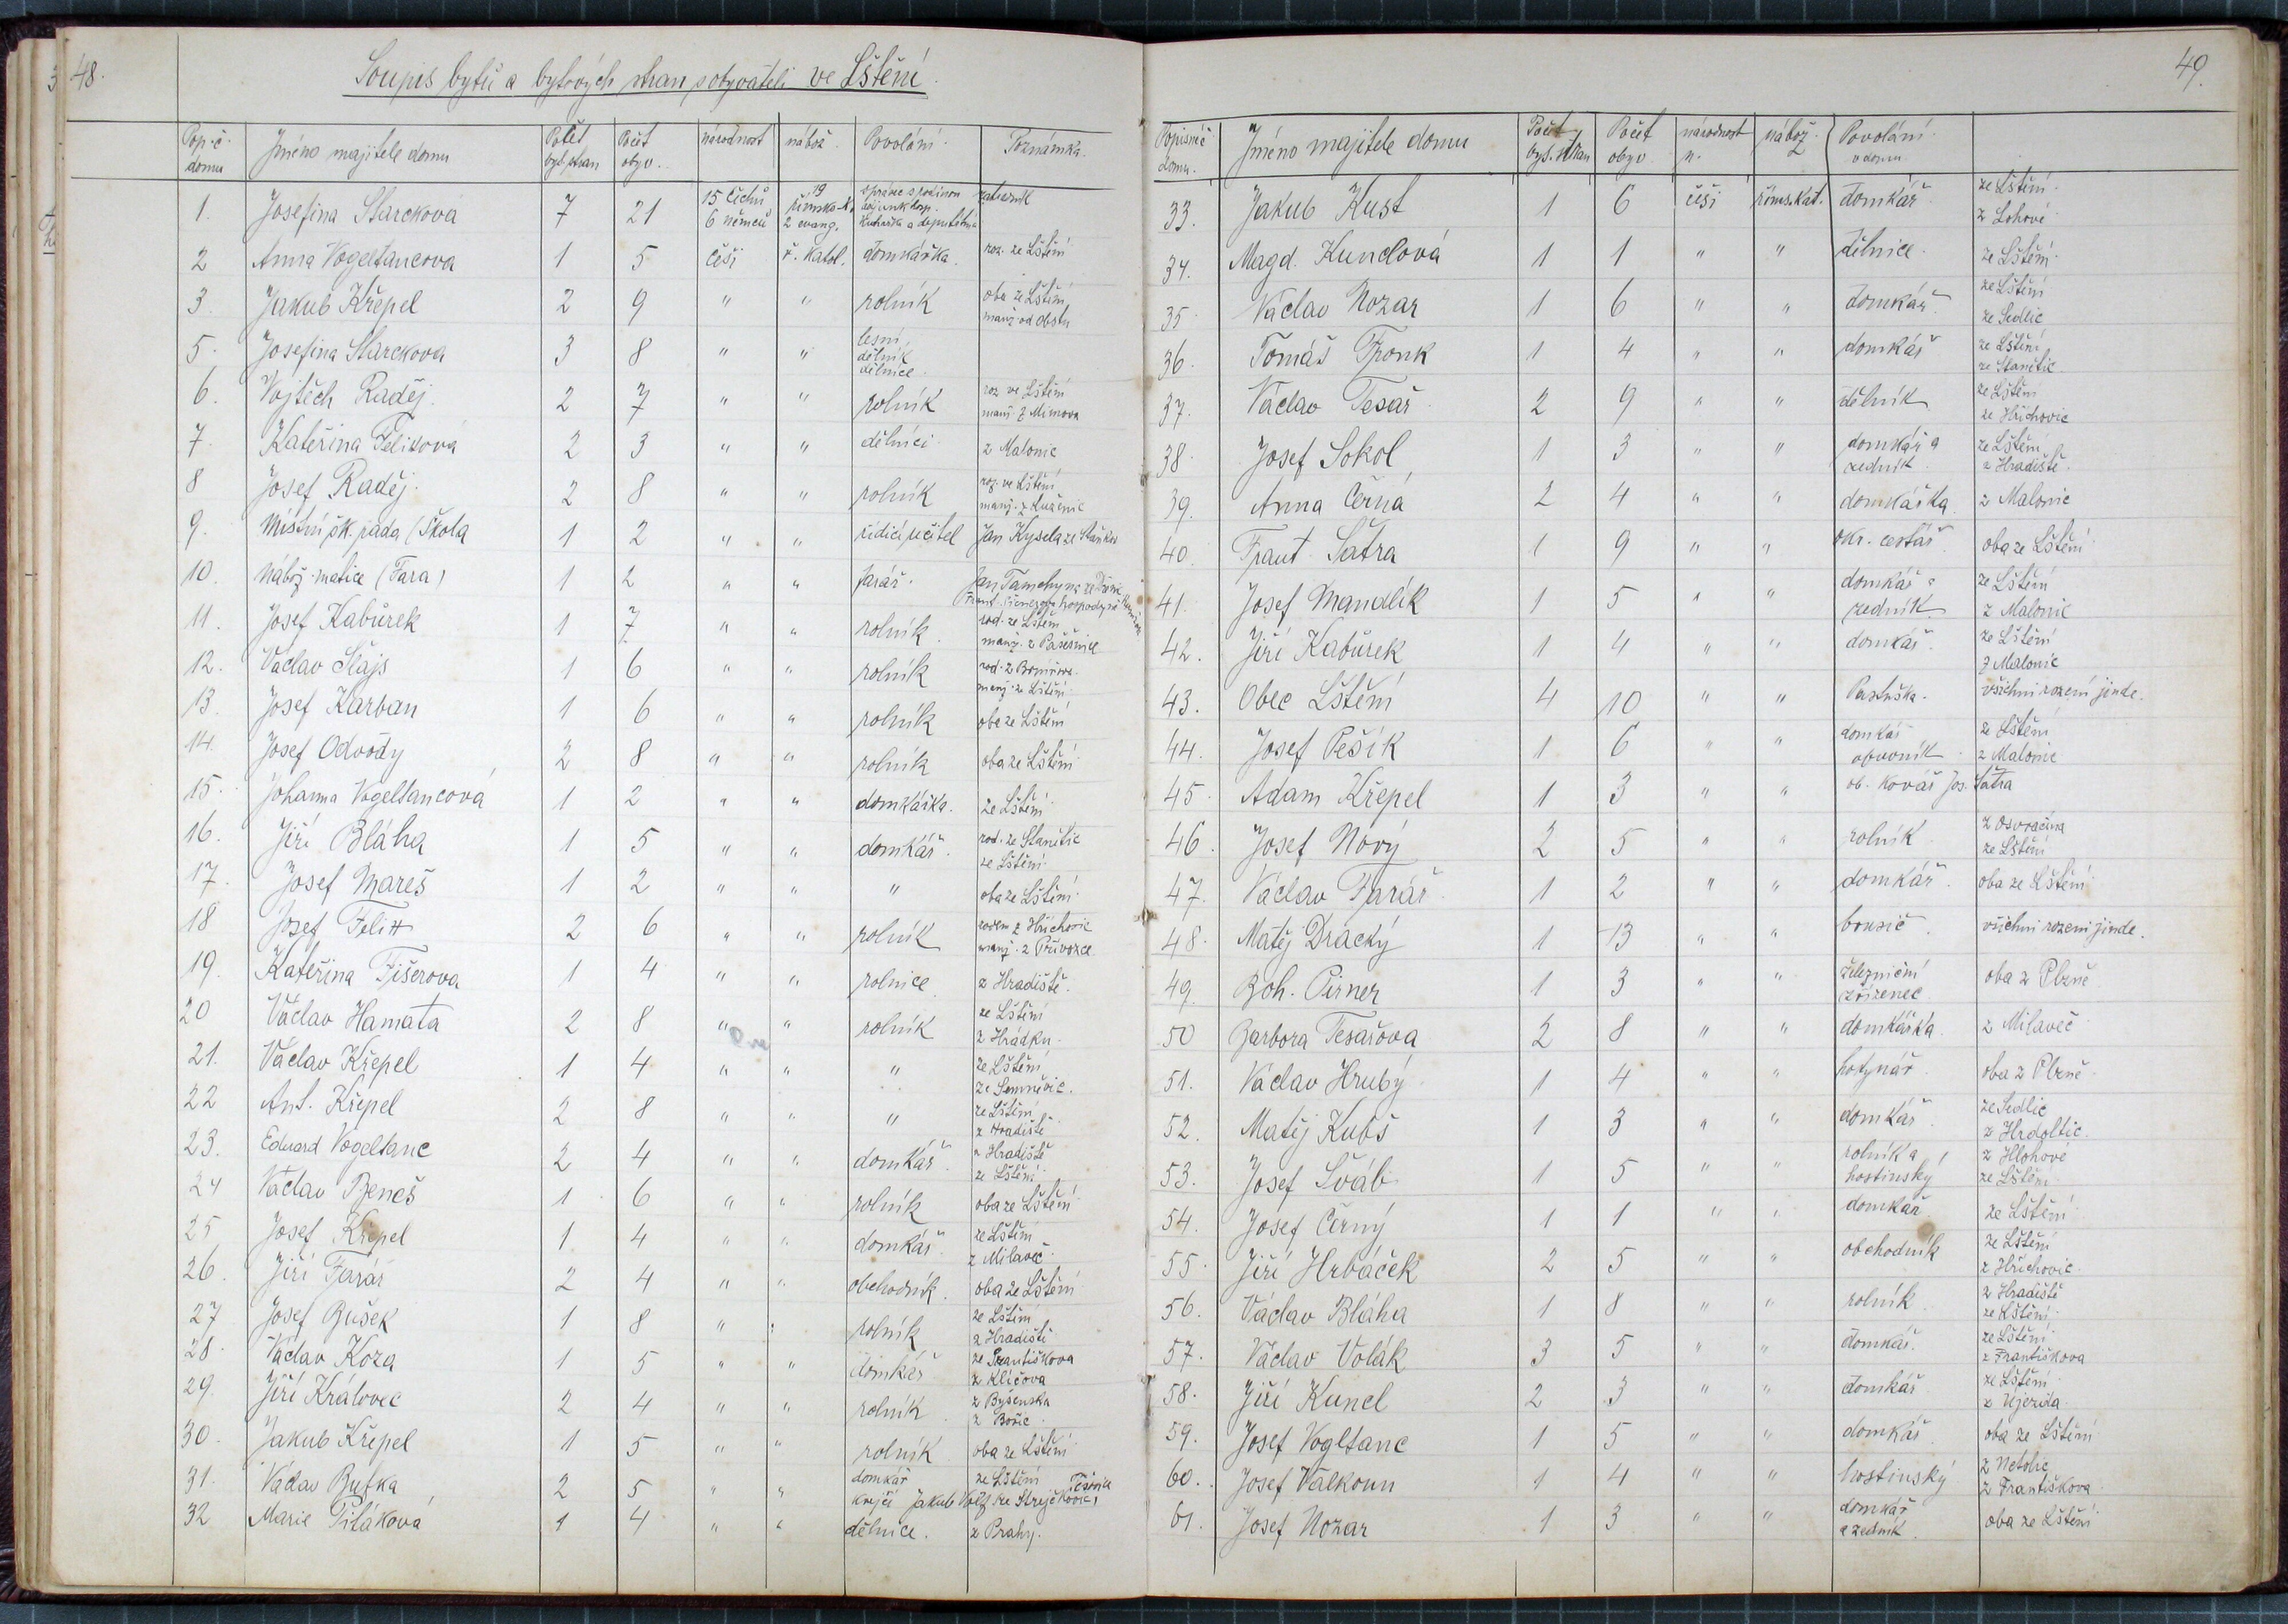 48.
Soupis bytů a bytových stran s obyvateli ve Lštění.
Pop. č. domu Jméno majitele domu Počet byt. stran Počet obyv. národnost nábož. Povolání Poznámka.
1. Josefina Starckova 7 21 15 Čechů 6 němců 19 římsko-k. 2 evang. správce s rodinou
2 Anna Vogeltancova 1 5 češi ř. katol. domkářka. roz. ze Lštění
3. Jakub Křepel 2 9 " " rolník oba ze Lštění
5. Josefina Starckova 3 8 " " lesní, dělník dělnice.
6. Vojtěch Raděj. 2 7 " " rolník roz ve Lštění manž. z Mimova
7. Kateřina Felixová 2 3 " " dělníci z Malonic
8 Josef Raděj. 2 8 " " rolník roz. ve Lštění
9. Místní šk. rada (Škola 1 2 " " řídící učitel Jan Kysela ze Staňkova
10. Nábož. matice (Fara) 1 2 " " farář. Jan Tamchyna
11. Josef Kabůrek 1 7 " " rolník. rod. ze Lštění
12. Václav Šlajs 1 6 " " rolník manž. ze Lštění
13. Josef Karban 1 6 " " rolník oba ze Lštění
14. Josef Odvody 2 8 " " rolník oba ze Lštění
15. Johanna Vogeltancová 1 2 " " domkářka. ze Lštění
16. Jiří Bláha 1 5 " " domkář. rod. ze Stanětic ze Lštění
17. Josef Mareš 1 2 " " " oba ze Lštění
18 Josef Felix 2 6 " " rolník rozen z Hřichovic manž. z Přívozce
19. Kateřina Fišerova 1 4 " " rolnice z Hradiště.
20 Václav Hamata 2 8 " " rolník ze Lštění z Hrádku.
21. Václav Křepel 1 4 " " " ze Lštění ze Semněvic.
22 Ant. Křepel 2 8 " " " ze Lštění z Hradiště
23. Eduard Vogeltanc 2 4 " " domkář. z Hradiště ze Lštění
24 Václav Beneš 1 6 " " rolník oba ze Lštění
25 Josef Křepel 1 4 " " domkář. ze Lštění z Milavec
26. Jiří Farář 2 4 " " obchodník. oba ze Lštění
27 Josef Bušek 1 8 " " rolník ze Lštění z Hradiště
28. Václav Koza 1 5 " " domkář ze Františkova z Klíčova
29. Jiří Královec 2 4 " " rolník
30. Jakub Křepel 1 5 " " rolník oba ze Lštění
31. Václav Bufka 2 5 " " domkář krejčí ze Lštění
32 Marie Pilákova 1 4 " " dělnice. z Prahy.
49.
Popisné č. domu. Jméno majitele domu Počet byt. stran Počet obyv. národnost nábož. Povolání v domu
33. Jakub Kust 1 6 češi římskat. domkář. ze Lštění z Lohové
34. Magd. Kunclová 1 1 " " dělnice. ze Lštění
35. Václav Nozar 1 6 " " domkář. ze Lštění ze Sedlic
36. Tomáš Fronk 1 4 " " domkář ze Lštění ze Stanětic
37. Václav Tesař 2 9 " " dělník ze Lštění ze Hřichovic
38. Josef Sokol 1 3 " " domkář a zedník ze Lštění z Hradiště.
39. Anna Černá 2 4 " " domkářka. z Malonic
40. Frant. Šatra 1 9 " " okr. cestář. oba ze Lštění
41. Josef Mandlík 1 5 " " domkář a zedník ze Lštění z Malonic
42. Jiří Kabůrek 1 4 " " domkář. ze Lštění z Malonic
43. Obec Lštění 4 10 " " Pastuška. všichni rozeni jinde.
44. Josef Pešík 1 6 " " domkář obuvník ze Lštění z Malonic
45. Adam Křepel 1 3 " " ob. kovář Jos. Šatra
46. Josef Nový 2 5 " " rolník z Osvračína ze Lštění
47. Václav Farář 1 2 " " domkář. oba ze Lštění
48. Matěj Dracký 1 13 " " brusič. všichni rozeni jinde.
49. Boh. Pirner 1 3 " " železniční zřízenec oba z Plzně.
50 Barbora Tesařova 2 8 " " domkářka. z Milaveč
51. Václav Hrubý 1 4 " " hodynář. oba z Plzně.
52. Matěj Kubš 1 3 " " domkář. ze Sedlic z Hrdoltic.
53. Josef Šváb 1 5 " " rolník a hostinský z Hlohové ze Lštění
54. Josef Černý 1 1 " " domkář. ze Lštění
55. Jiří Hrbáček 2 5 " " obchodník ze Lštění z Hřichovic.
56. Václav Bláha 1 8 " " rolník z Hradiště ze Lštění
57. Václav Volák 3 5 " " domkář. ze Lštění z Františkova
58. Jiří Kuncl 2 3 " " domkář ze Lštění z Újezda
59. Josef Vogltanc 1 5 " " domkář oba ze Lštění
60. Josef Valkoun 1 4 " " hostinský z Netolic z Františkova
61. Josef Nozar 1 3 " " domkář a zedník. oba ze Lštění